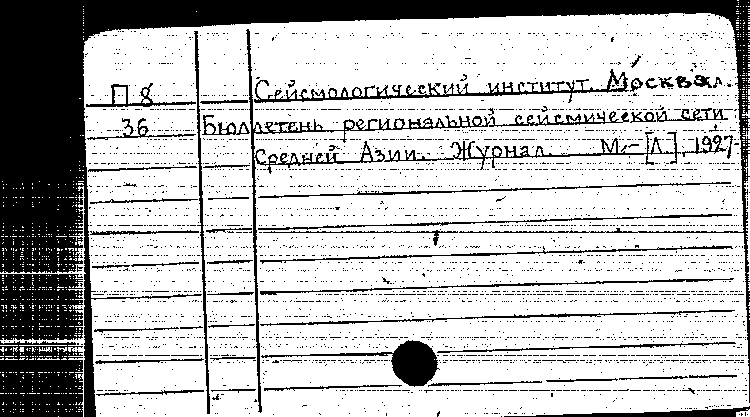 П 8 Сейсмологический институт. Москва
36 Бюллетень региональной сейсмической сети
Средней Азии. Журнал. М.-[Л.], 1927-